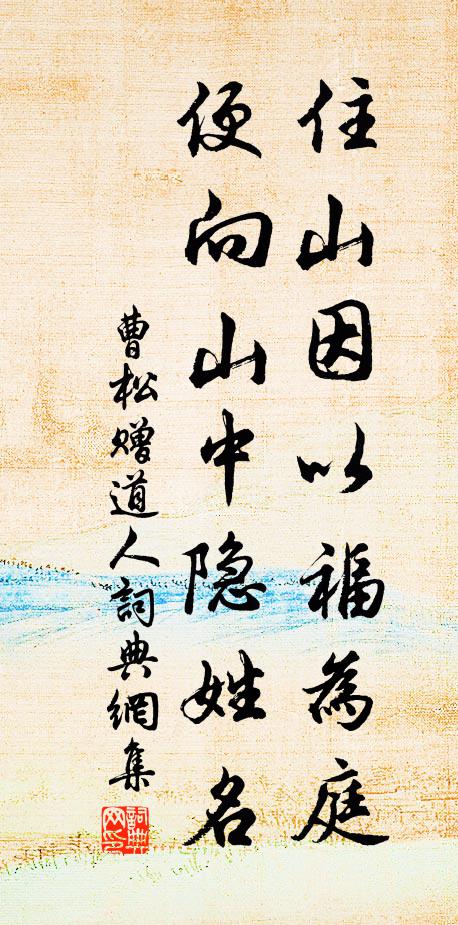 住山因以福為庭
便向山中隐姓名
曹松赠道人詞典網集
詞典网印